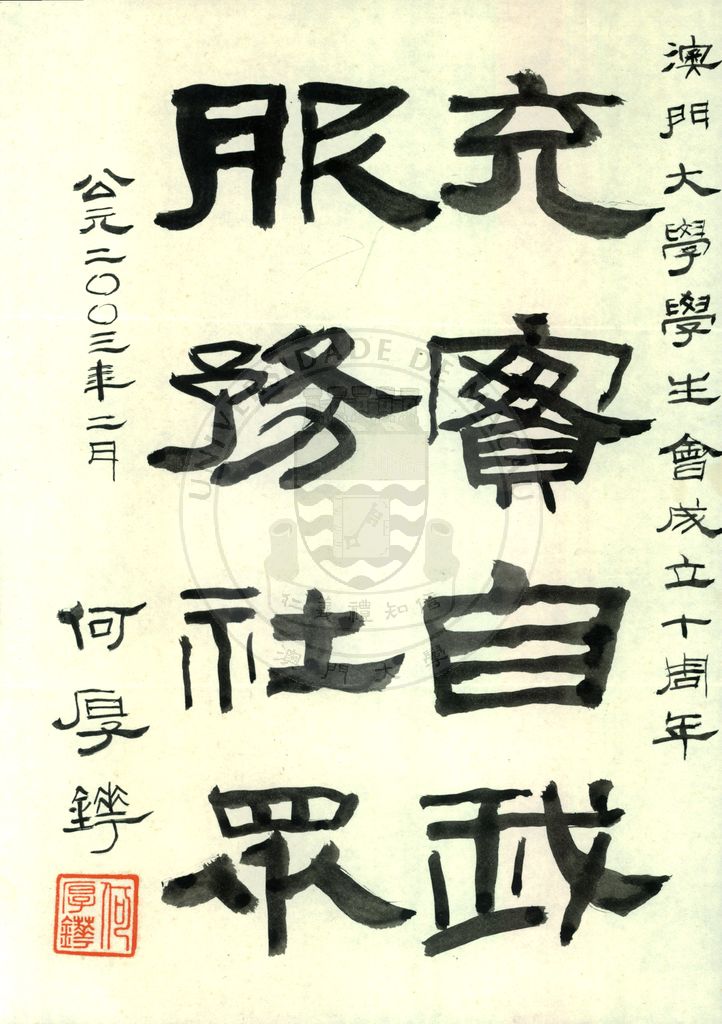 澳門大學學生會成立十周年
充實自我
服務社眾
公元二〇〇三年二月
何厚鏵
何厚鏵
UNIVERSIDADE DE
仁義禮知信
澳門大學